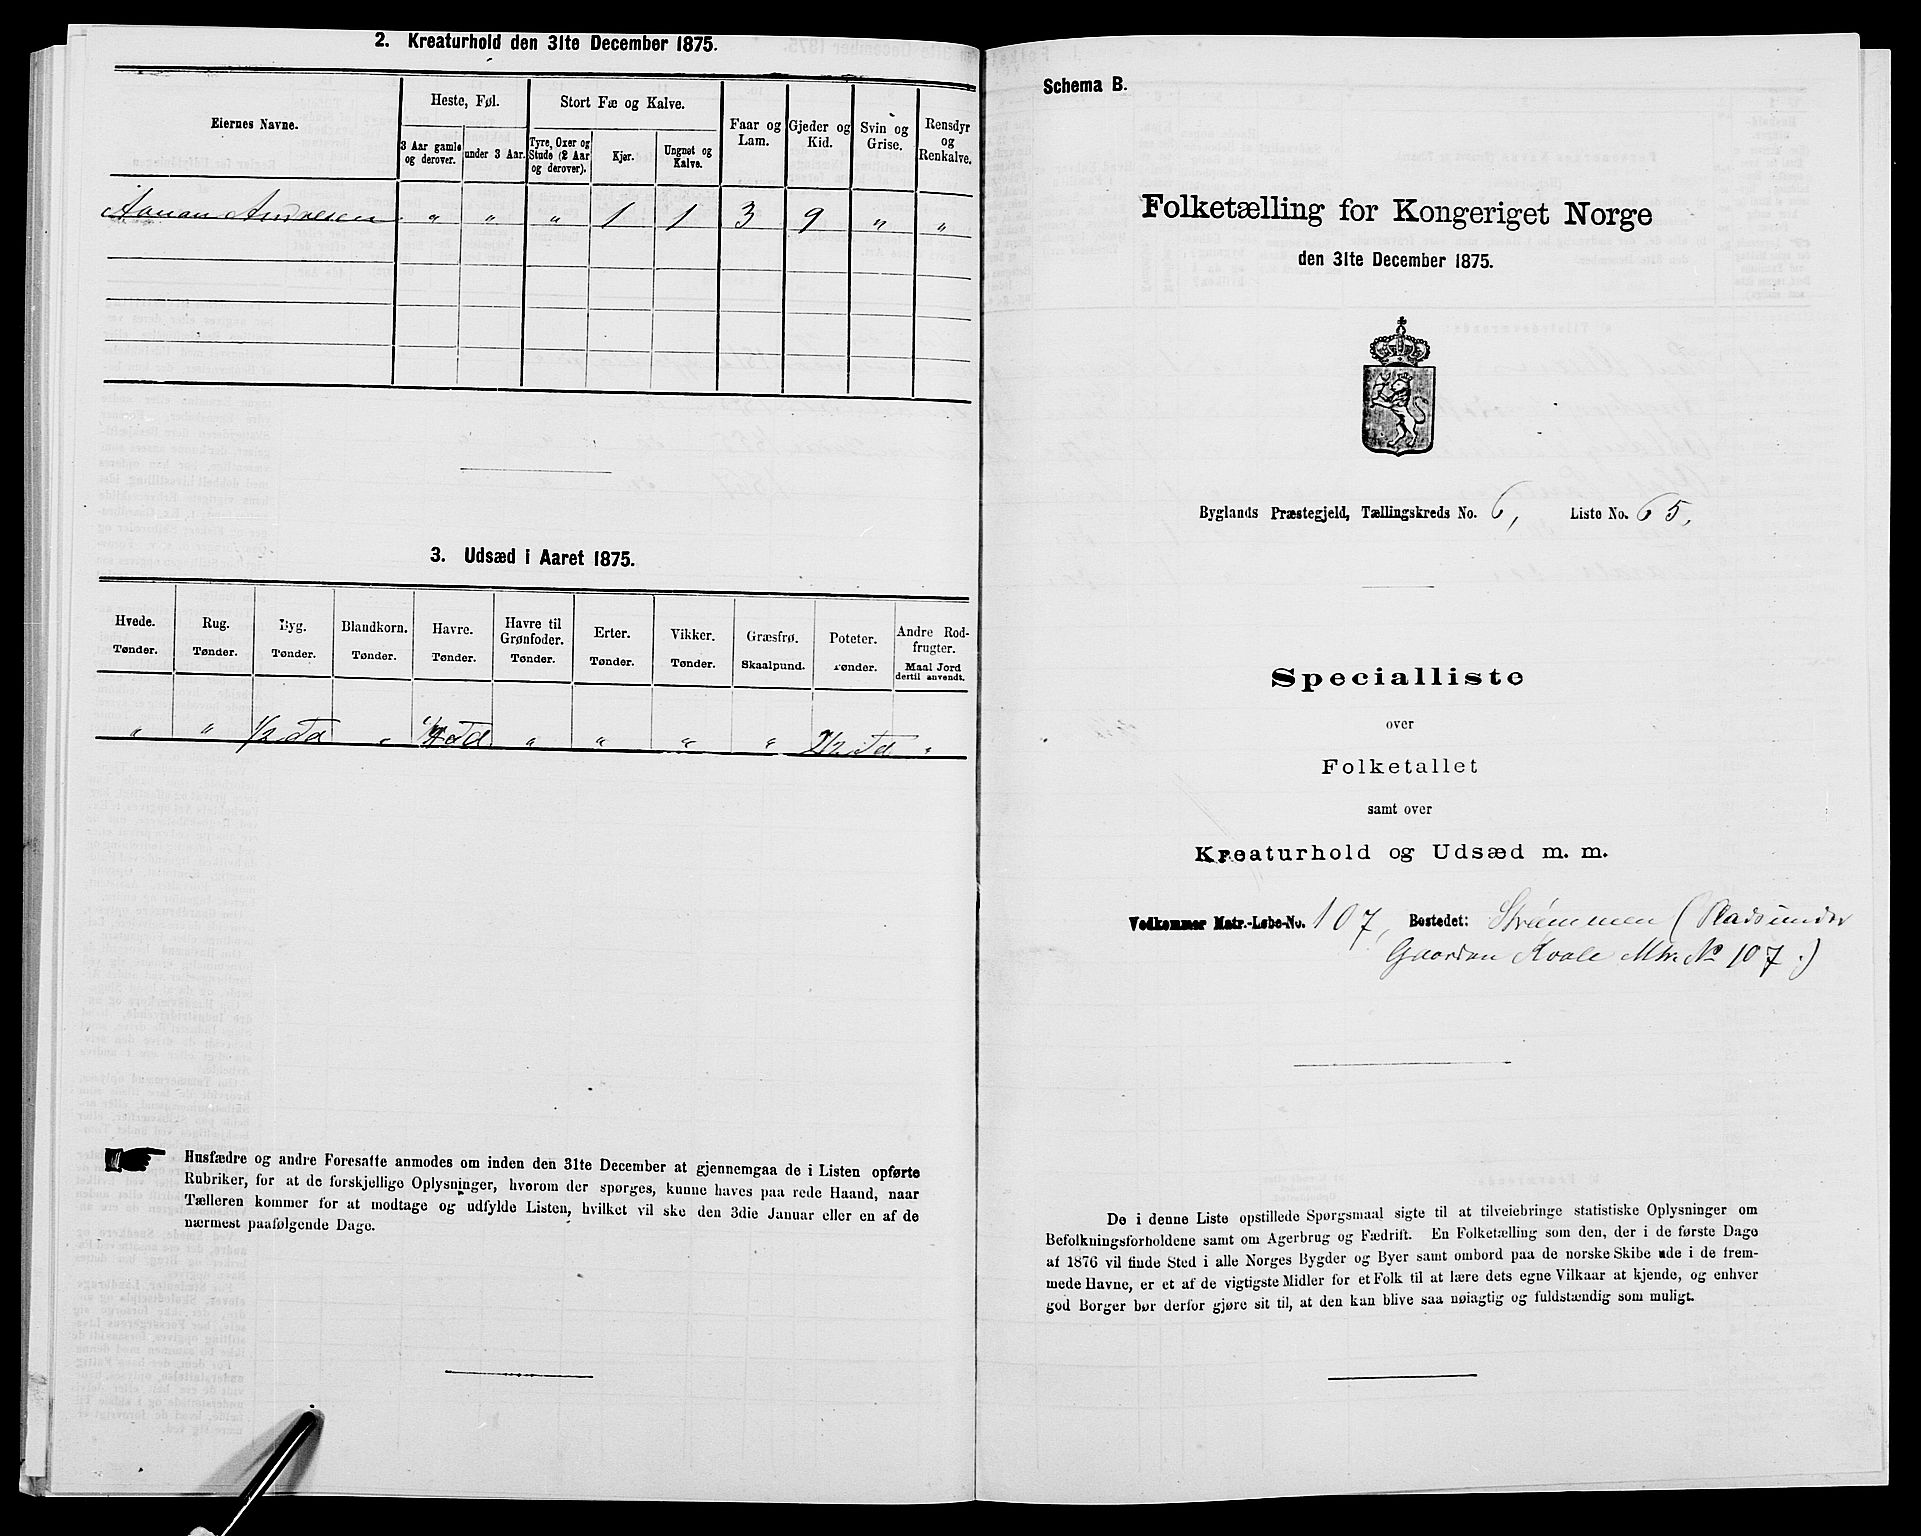 2. Kreaturhold den 31te December 1875.
Eiernes Navne.
Heste, Føl.
Stort Fæ og Kalve.
Faar og Lam.
Gjeder og Kid.
Svin og Grise.
Rensdyr og Renkalve.
3 Aar gamle og derover.
under 3 Aar.
Tyre, Oxer og Stude (2 Aar og derover).
Kjør.
Ungnøt og Kalve.
" " " 1 1 3 9 " "
3. Udsæd i Aaret 1875.
Hvede. Tønder.
Rug. Tønder.
Byg. Tønder.
Blandkorn. Tønder.
Havre. Tønder.
Havre til Grønfoder. Tønder.
Erter. Tønder.
Vikker. Tønder.
Græsfrø. Skaalpund.
Poteter. Tønder.
Andre Rodfrugter. Maal Jord dertil anvendt.
" " 1/2 Td " Td " " " " 2 1/2 Td "
Husfædre og andre Foresatte anmodes om inden den 31te December at gjennemgaa de i Listen opførte
Rubriker, for at de forskjellige Oplysninger, hvorom der spørges, kunne haves paa rede Haand, naar
Tælleren kommer for at modtage og udfylde Listen, hvilket vil ske den 3die Januar eller en af de
nærmest paafølgende Dage.
Schema B.
Folketælling for Kongeriget Norge
den 31te December 1875.
Byglands Præstegjeld, Tællingskreds No. 6, Liste No. 65.
Specialliste
over
Folketallet
samt over
Kreaturhold og Udsæd m. m.
Vedkommer Matr.-Løbe-No. 107, Bostedet: Strømmen (Plads under
Gaarden Kvale Mtr. No 107.)
De i denne Liste opstillede Spørgsmaal sigte til at tilveiebringe statistiske Oplysninger om
Befolkningsforholdene samt om Agerbrug og Fædrift. En Folketælling som den, der i de første Dage
af 1876 vil finde Sted i alle Norges Bygder og Byer samt ombord paa de norske Skibe ude i de frem-
mede Havne, er et af de vigtigste Midler for et Folk til at lære dets egne Vilkaar at kjende, og enhver
god Borger bør derfor gjøre sit til, at den kan blive saa nøiagtig og fuldstændig som muligt.